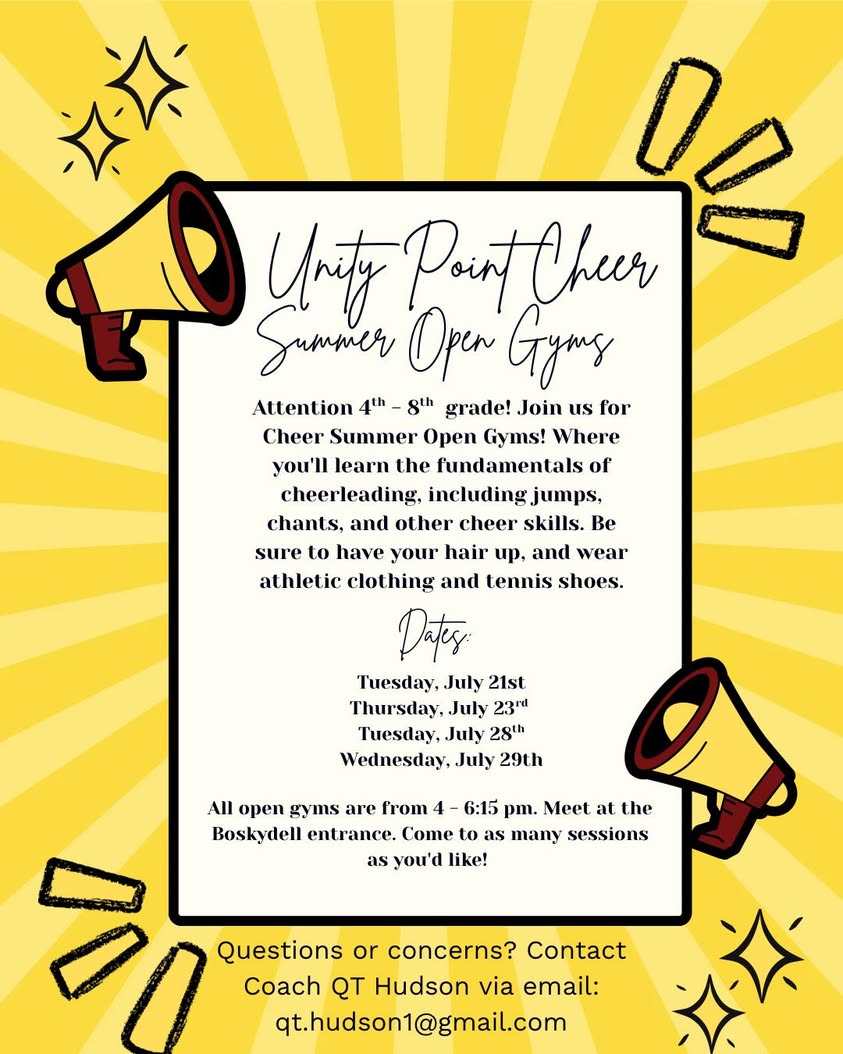 Unity Point Cheer
Summer Open Gyms
Attention 4th - 8th grade! Join us for
Cheer Summer Open Gyms! Where
you'll learn the fundamentals of
cheerleading, including jumps,
chants, and other cheer skills. Be
sure to have your hair up, and wear
athletic clothing and tennis shoes.
Dates:
Tuesday, July 21st
Thursday, July 23rd
Tuesday, July 28th
Wednesday, July 29th
All open gyms are from 4 - 6:15 pm. Meet at the
Boskydell entrance. Come to as many sessions
as you'd like!
Questions or concerns? Contact
Coach QT Hudson via email:
qt.hudson1@gmail.com